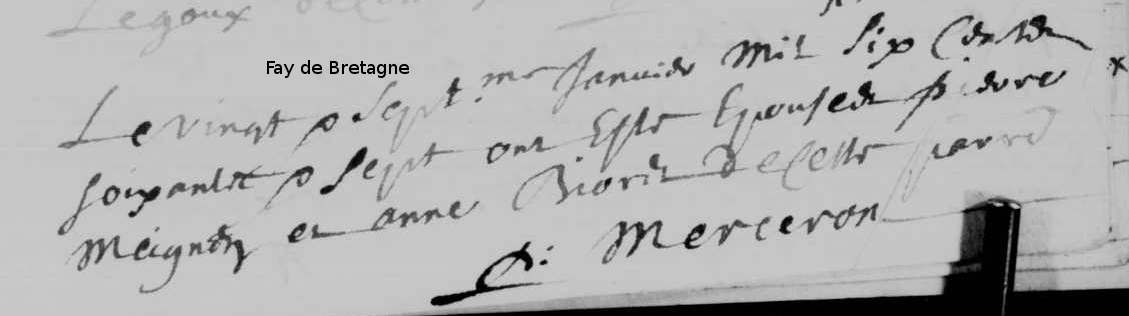 Legoux
Fay de Bretagne
Le vingt & sept.me Janvier Mil Six Cents
soixante & Sept ont Esté Epousés pierre
Meignen et anne Bioret de Cette parre
Merceron